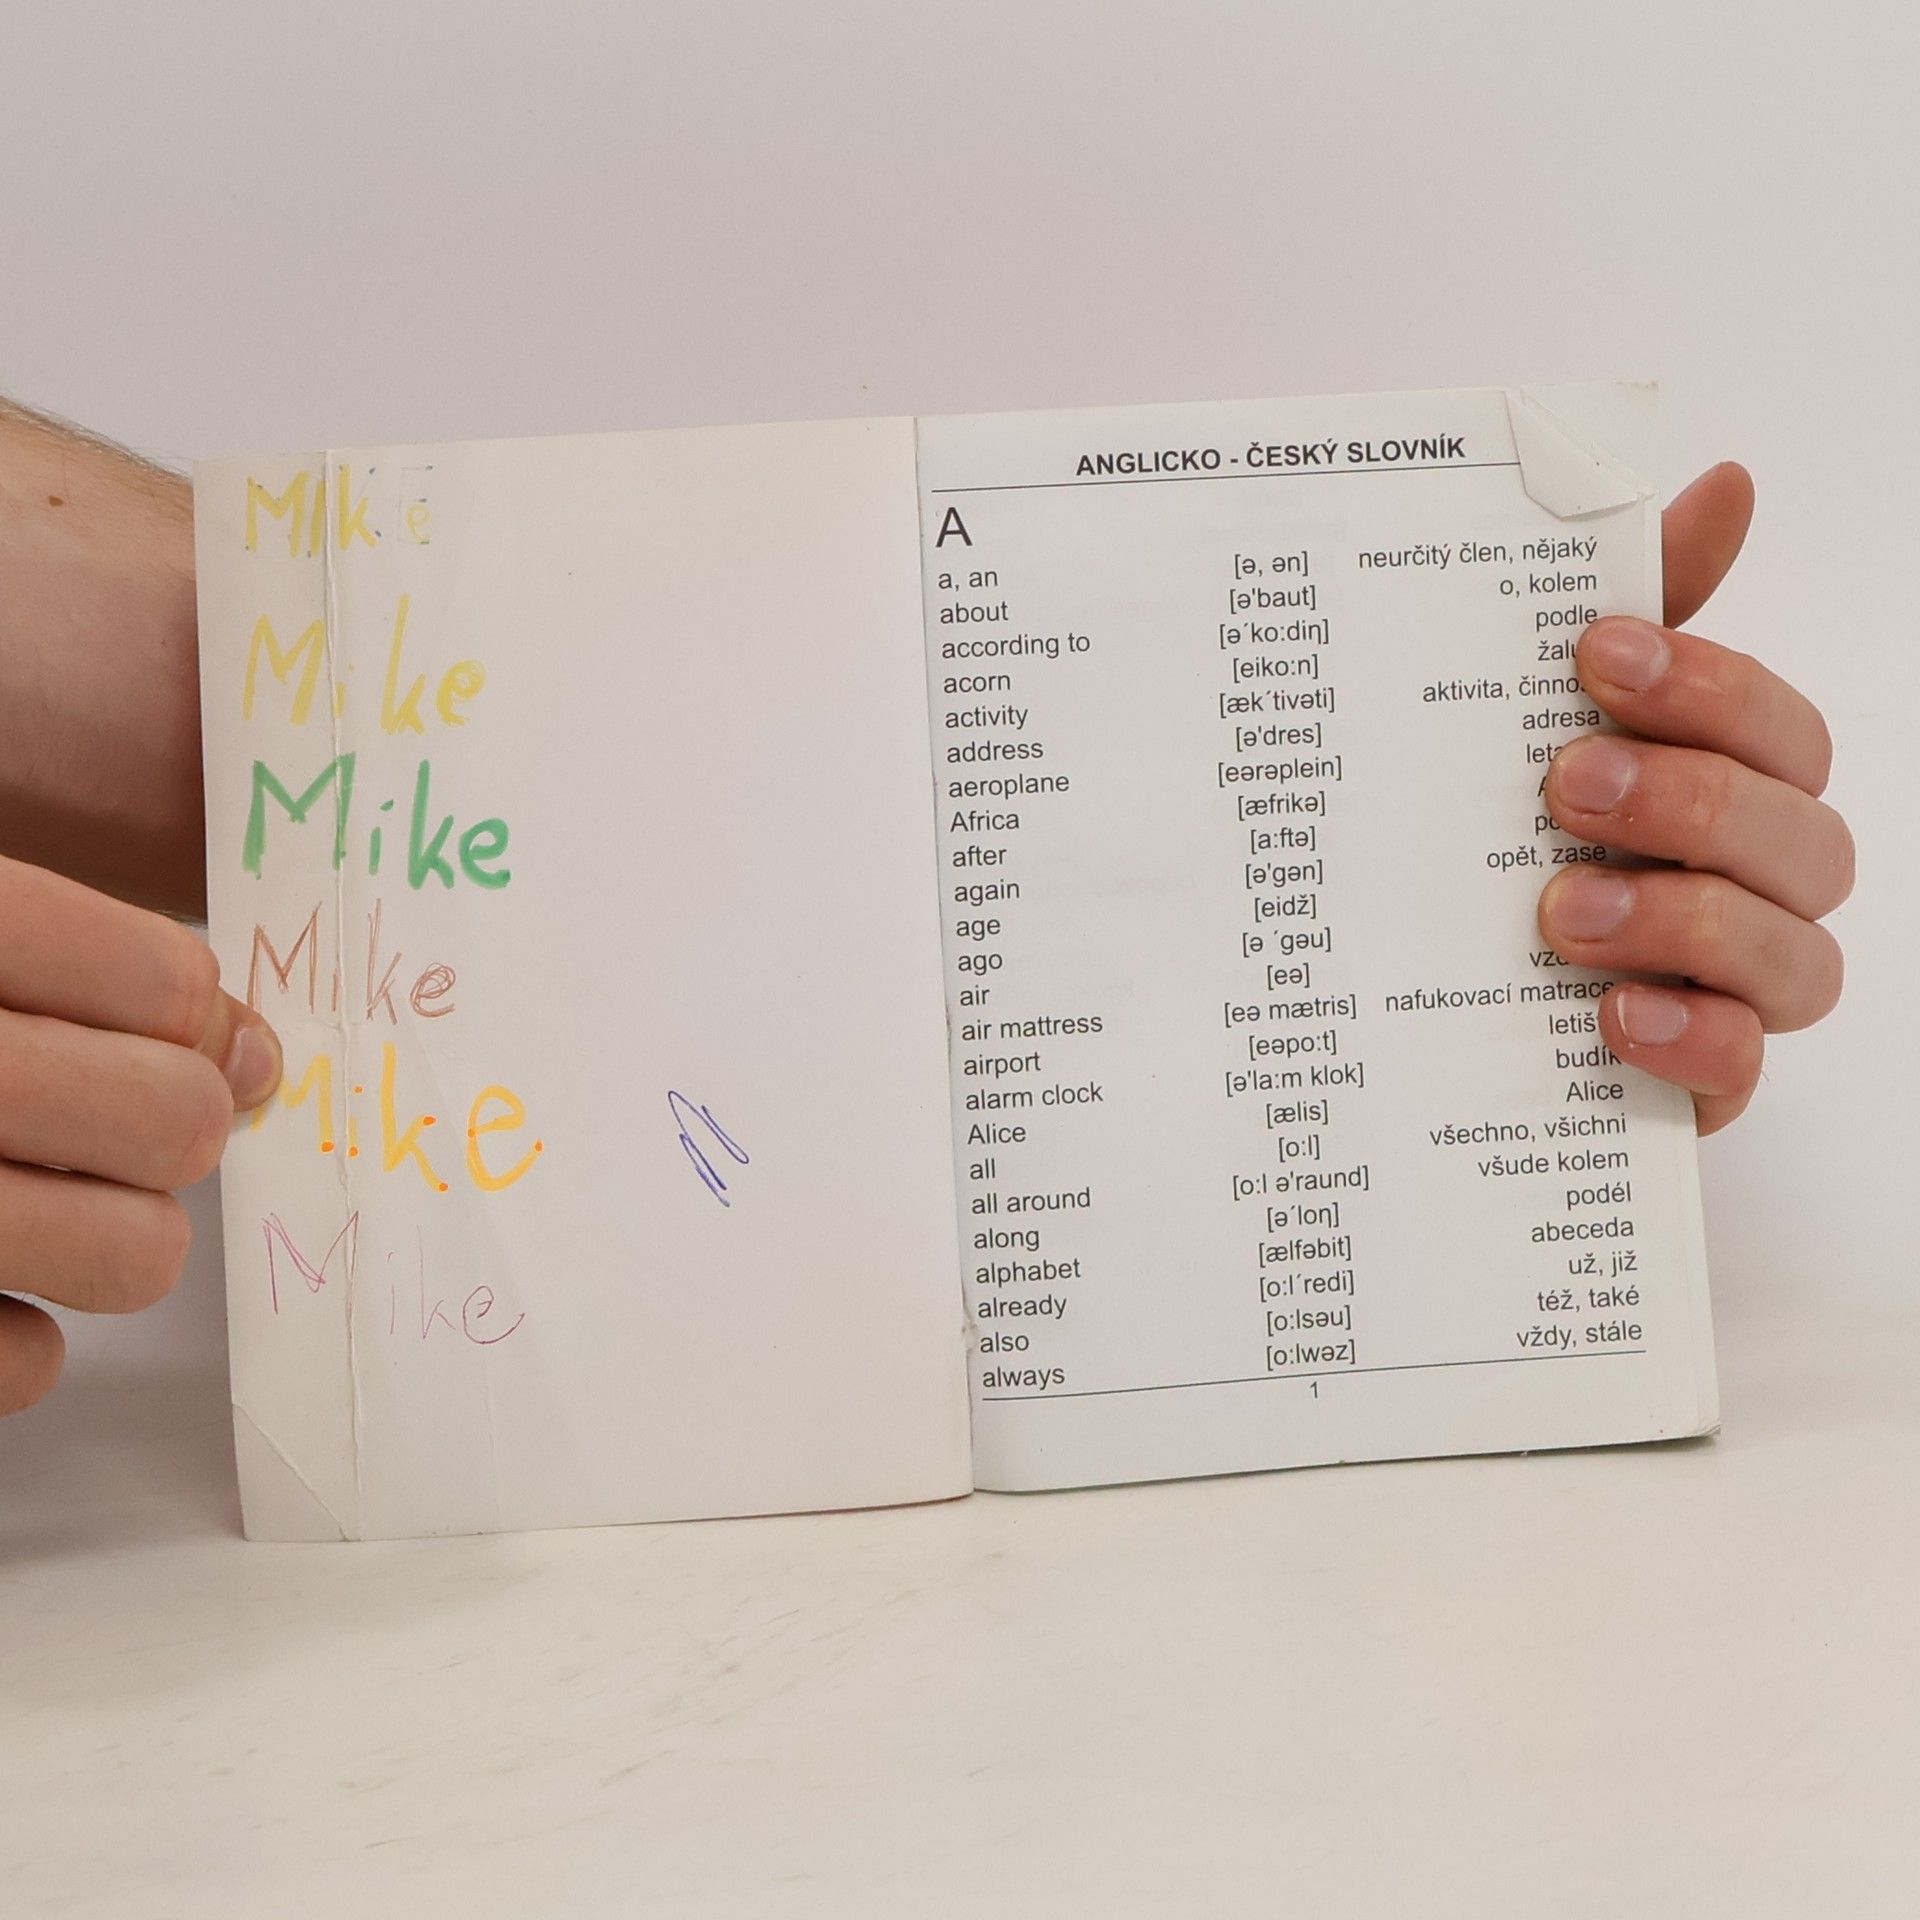 MIke
Mike
Mike
Mike
Mike
Mike
ANGLICKO - ČESKÝ SLOVNÍK
A
a, an [ə, ən] neurčitý člen, nějaký
about [ə'baut] o, kolem
according to [ə´ko:diŋ] podle
acorn [eiko:n]
activity [æk´tivəti] aktivita,
address [ə'dres] adresa
aeroplane [eərəplein]
Africa [æfrikə]
after [a:ftə]
again [ə'gən] opět, zase
age [eidž]
ago [ə ´gəu]
air [eə]
air mattress [eə mætris] nafukovací matrace
airport [eəpo:t]
alarm clock [ə'la:m klok] budík
Alice [ælis] Alice
all [o:l] všechno, všichni
all around [o:l ə'raund] všude kolem
along [ə´loŋ] podél
alphabet [ælfəbit] abeceda
already [o:l´redi] už, již
also [o:lsəu] též, také
always [o:lwəz] vždy, stále
1